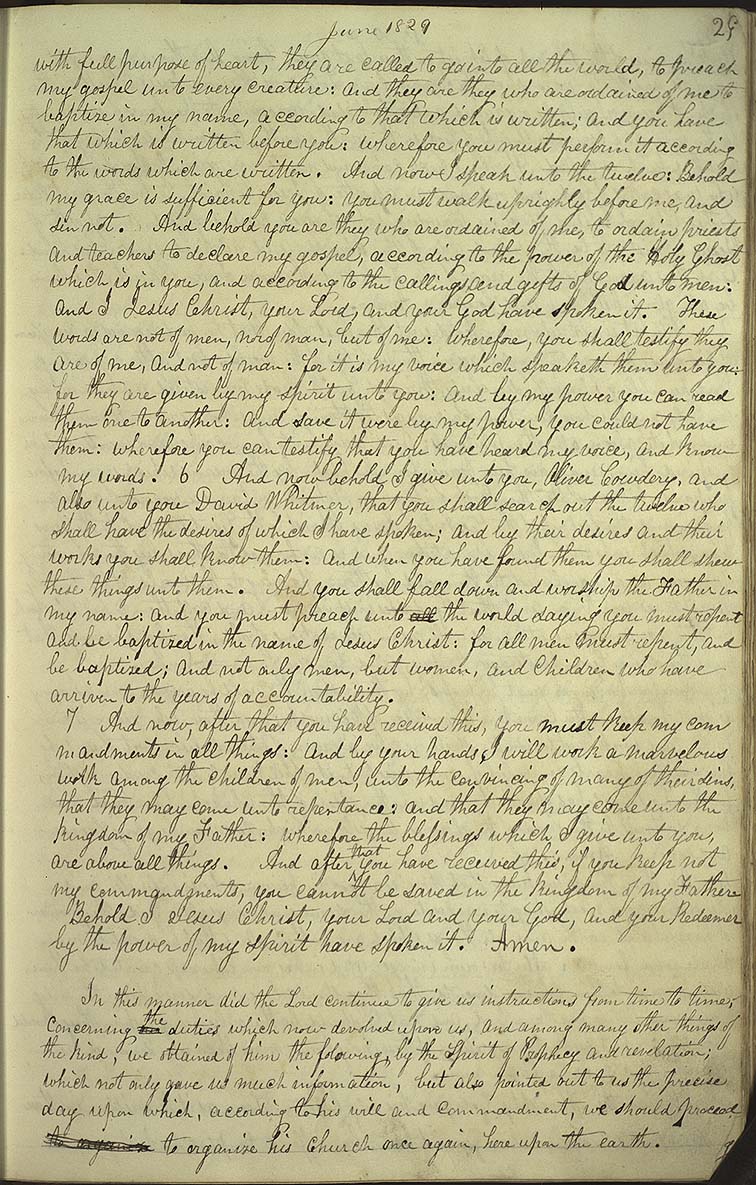 June 1829
29
with full purpose of heart, they are called to go into all the world, to preach
my gospel unto every creature: and they are they who are ordained of me to
baptize in my name, according to that which is written; and you have
that which is written before you: wherefore you must perform it according
to the words which are written. And now I speak unto the twelve: Behold
my grace is sufficient for you: you must walk uprighly before me, and
sin not. And behold you are they who are ordained of me, to ordain priests
and teachers to declare my gospel, according to the power of the Holy Ghost
which is in you, and according to the callings and gifts of God unto men:
and I Jesus Christ, your Lord, and your God have spoken it. These
words are not of men, nor of man, but of me: wherefore, you shall testify they
are of me, and not of man: for it is my voice which speaketh them unto you:
for they are given by my spirit unto you: and by my power you can read
them one to another: and save it were by my power, you could not have
them: wherefore you can testify that you have heard my voice, and know
my words. 6 And now behold I give unto you, Oliver Cowdery, and
also unto you David Whitmer, that you shall search out the twelve who
shall have the desires of which I have spoken; and by their desires and their
works you shall know them: and when you have found them you shall shew
these things unto them. And you shall fall down and worship the Father in
my name: and you must preach unto all the world saying you must repent
and be baptized in the name of Jesus Christ: for all men must repent, and
be baptized; and not only men, but women, and children who have
arriven to the years of accountability.
7 And now, after that you have received this, you must keep my com
mandments in all things: and by your hands I will work a marvelous
work among the children of men, unto the convincing of many of their sins,
that they may come unto repentance: and that they may come unto the
kingdom of my Father: wherefore the blessings which I give unto you,
are above all things. And after that you have received this, if you keep not
my commandments, you cannot be saved in the kingdom of my Father
Behold I Jesus Christ, your Lord and your God, and your Redeemer
by the power of my spirit have spoken it. Amen.
In this manner did the Lord continue to give us instructions from time to time,
concerning the duties which now devolved upon us, and among many other things of
the kind, we obtained of him the folowing, by the Spirit of Prophecy and revelation;
which not only gave us much information, but also pointed out to us the precise
day upon which, according to his will and commandment, we should proceed
to organize to organize his Church once again, here upon the earth.